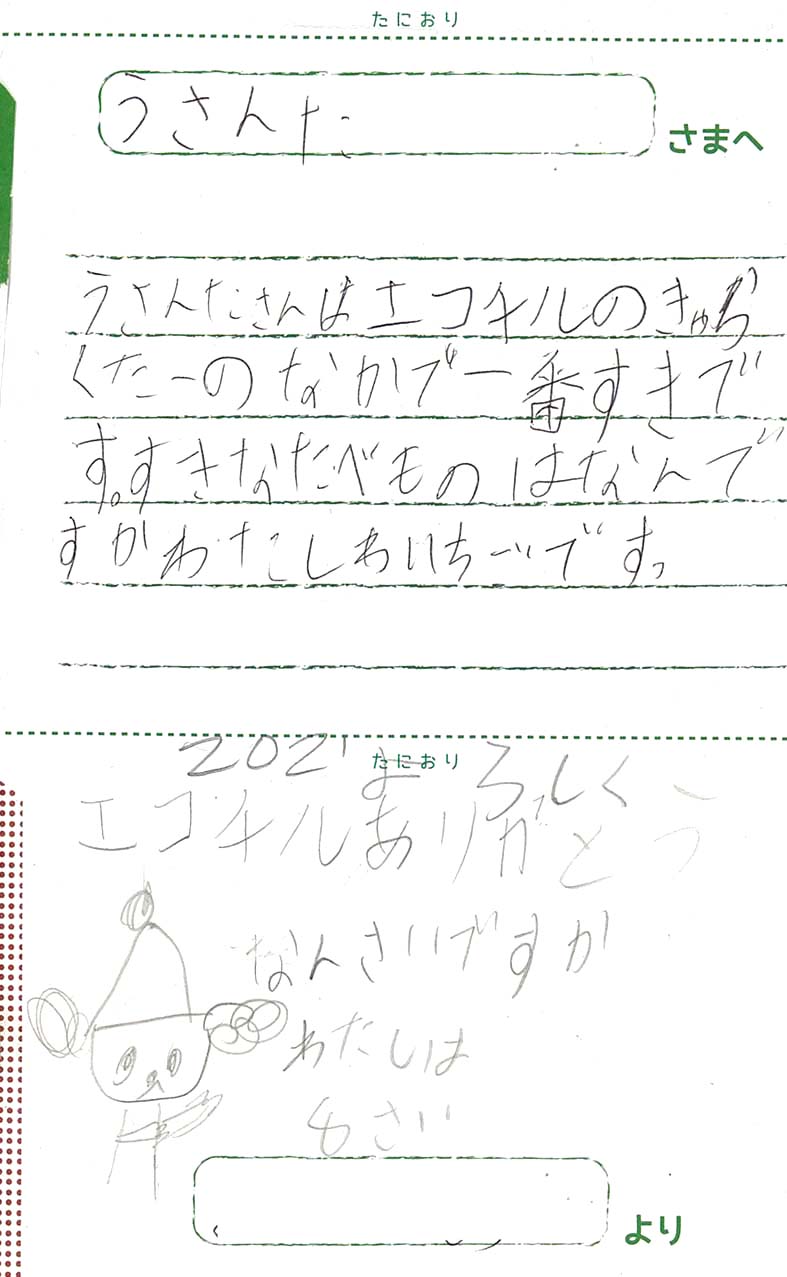 たにおり
うさんた
さまへ
うさんたさんはエコチルのきゃら
くたーのなかで一番すきで
す。すきなたべものはなんで
すかわたしわいちごです。
たにおり
2021よろしく
エコチルありがとう
なんさいですか
わたしは
さい
より